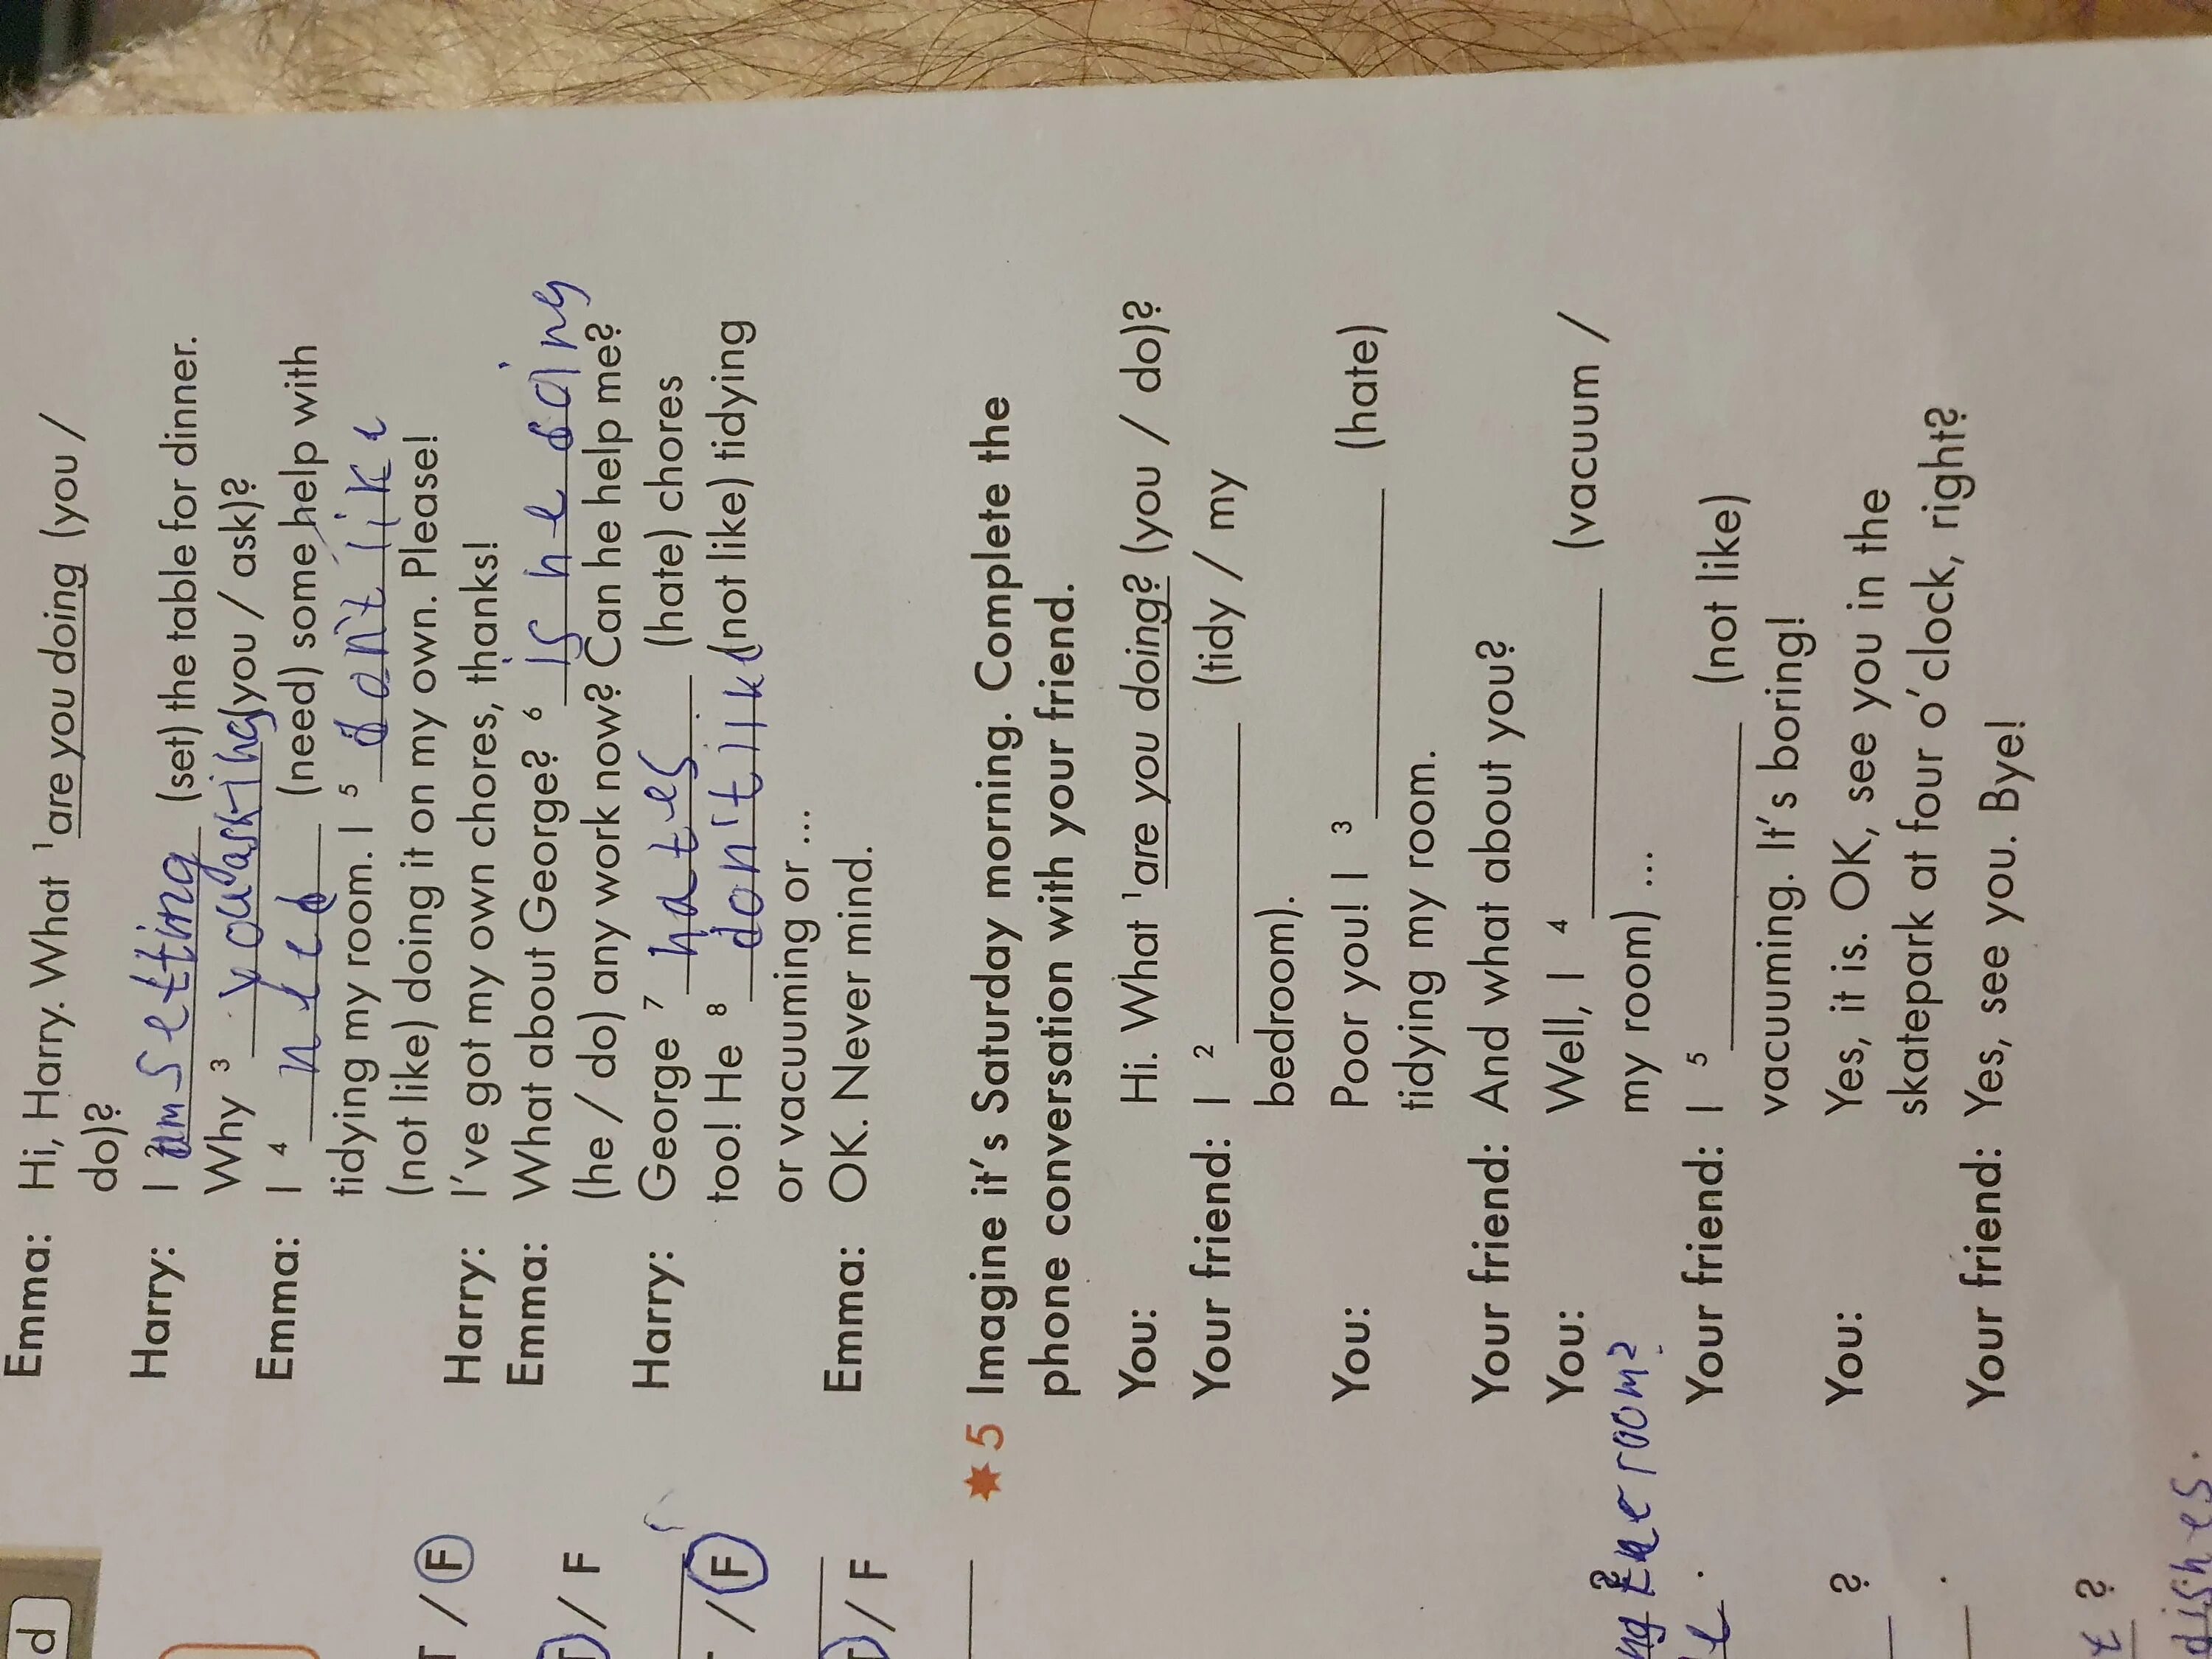 d
Emma: Hi, Harry. What ¹are you doing (you /
do)?
Harry: I ²am setting (set) the table for dinner.
Why ³ you asking (you / ask)?
Emma: I ⁴ need (need) some help with
tidying my room. I ⁵ don't like
(not like) doing it on my own. Please!
Harry: I've got my own chores, thanks!
Emma: What about George? ⁶ is he doing
(he / do) any work now? Can he help me?
Harry: George ⁷ hates (hate) chores
too! He ⁸ don't like (not like) tidying
or vacuuming or ...
Emma: OK. Never mind.
T / F
T / F
/ F
T / F
5 Imagine it's Saturday morning. Complete the
phone conversation with your friend.
You: Hi. What ¹are you doing? (you / do)?
Your friend: I ² (tidy / my
bedroom).
You: Poor you! I ³ (hate)
tidying my room.
Your friend: And what about you?
You: Well, I ⁴ (vacuum /
my room) ...
Your friend: I ⁵ (not like)
vacuuming. It's boring!
You: Yes, it is. OK, see you in the
skatepark at four o'clock, right?
Your friend: Yes, see you. Bye!
the room?
?
.
?
dishes.